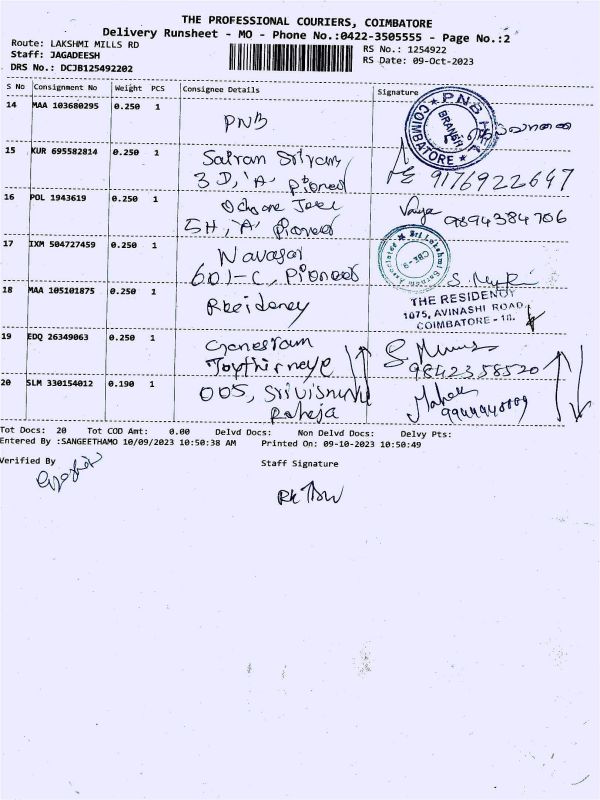 THE PROFESSIONAL COURIERS, COIMBATORE
Delivery Runsheet - MO - Phone No.:0422-3505555 - Page No.:2
Route: LAKSHMI MILLS RD
Staff: JAGADEESH
DRS No.: DCJB125492202
RS No.: 1254922
RS Date: 09-Oct-2023
S No Consignment No Weight PCS Consignee Details Signature
14 MAA 103680295 0.250 1 PNB
PNB
BRANCH
COIMBATORE
15 KUR 695582814 0.250 1 Sairam
3D, 'A' Pioneer
9176922647
16 POL 1943619 0.250 1
5H, 'A' Pioneer
9894384706
17 IXM 504727459 0.250 1 Navagar
601-C, Pioneer
Sri Lakshmi
CBE-9
18 MAA 105101875 0.250 1 Residency
THE RESIDENCY
1075, AVINASHI ROAD,
COIMBATORE - 18.
19 EDQ 26349063 0.250 1 Ganesram
9842358520
20 SLM 330154012 0.190 1 005, Srivishnu
Raheja
Tot Docs: 20 Tot COD Amt: 0.00 Delvd Docs: Non Delvd Docs: Delvy Pts:
Entered By :SANGEETHAMO 10/09/2023 10:50:38 AM Printed On: 09-10-2023 10:50:49
Verified By
Staff Signature